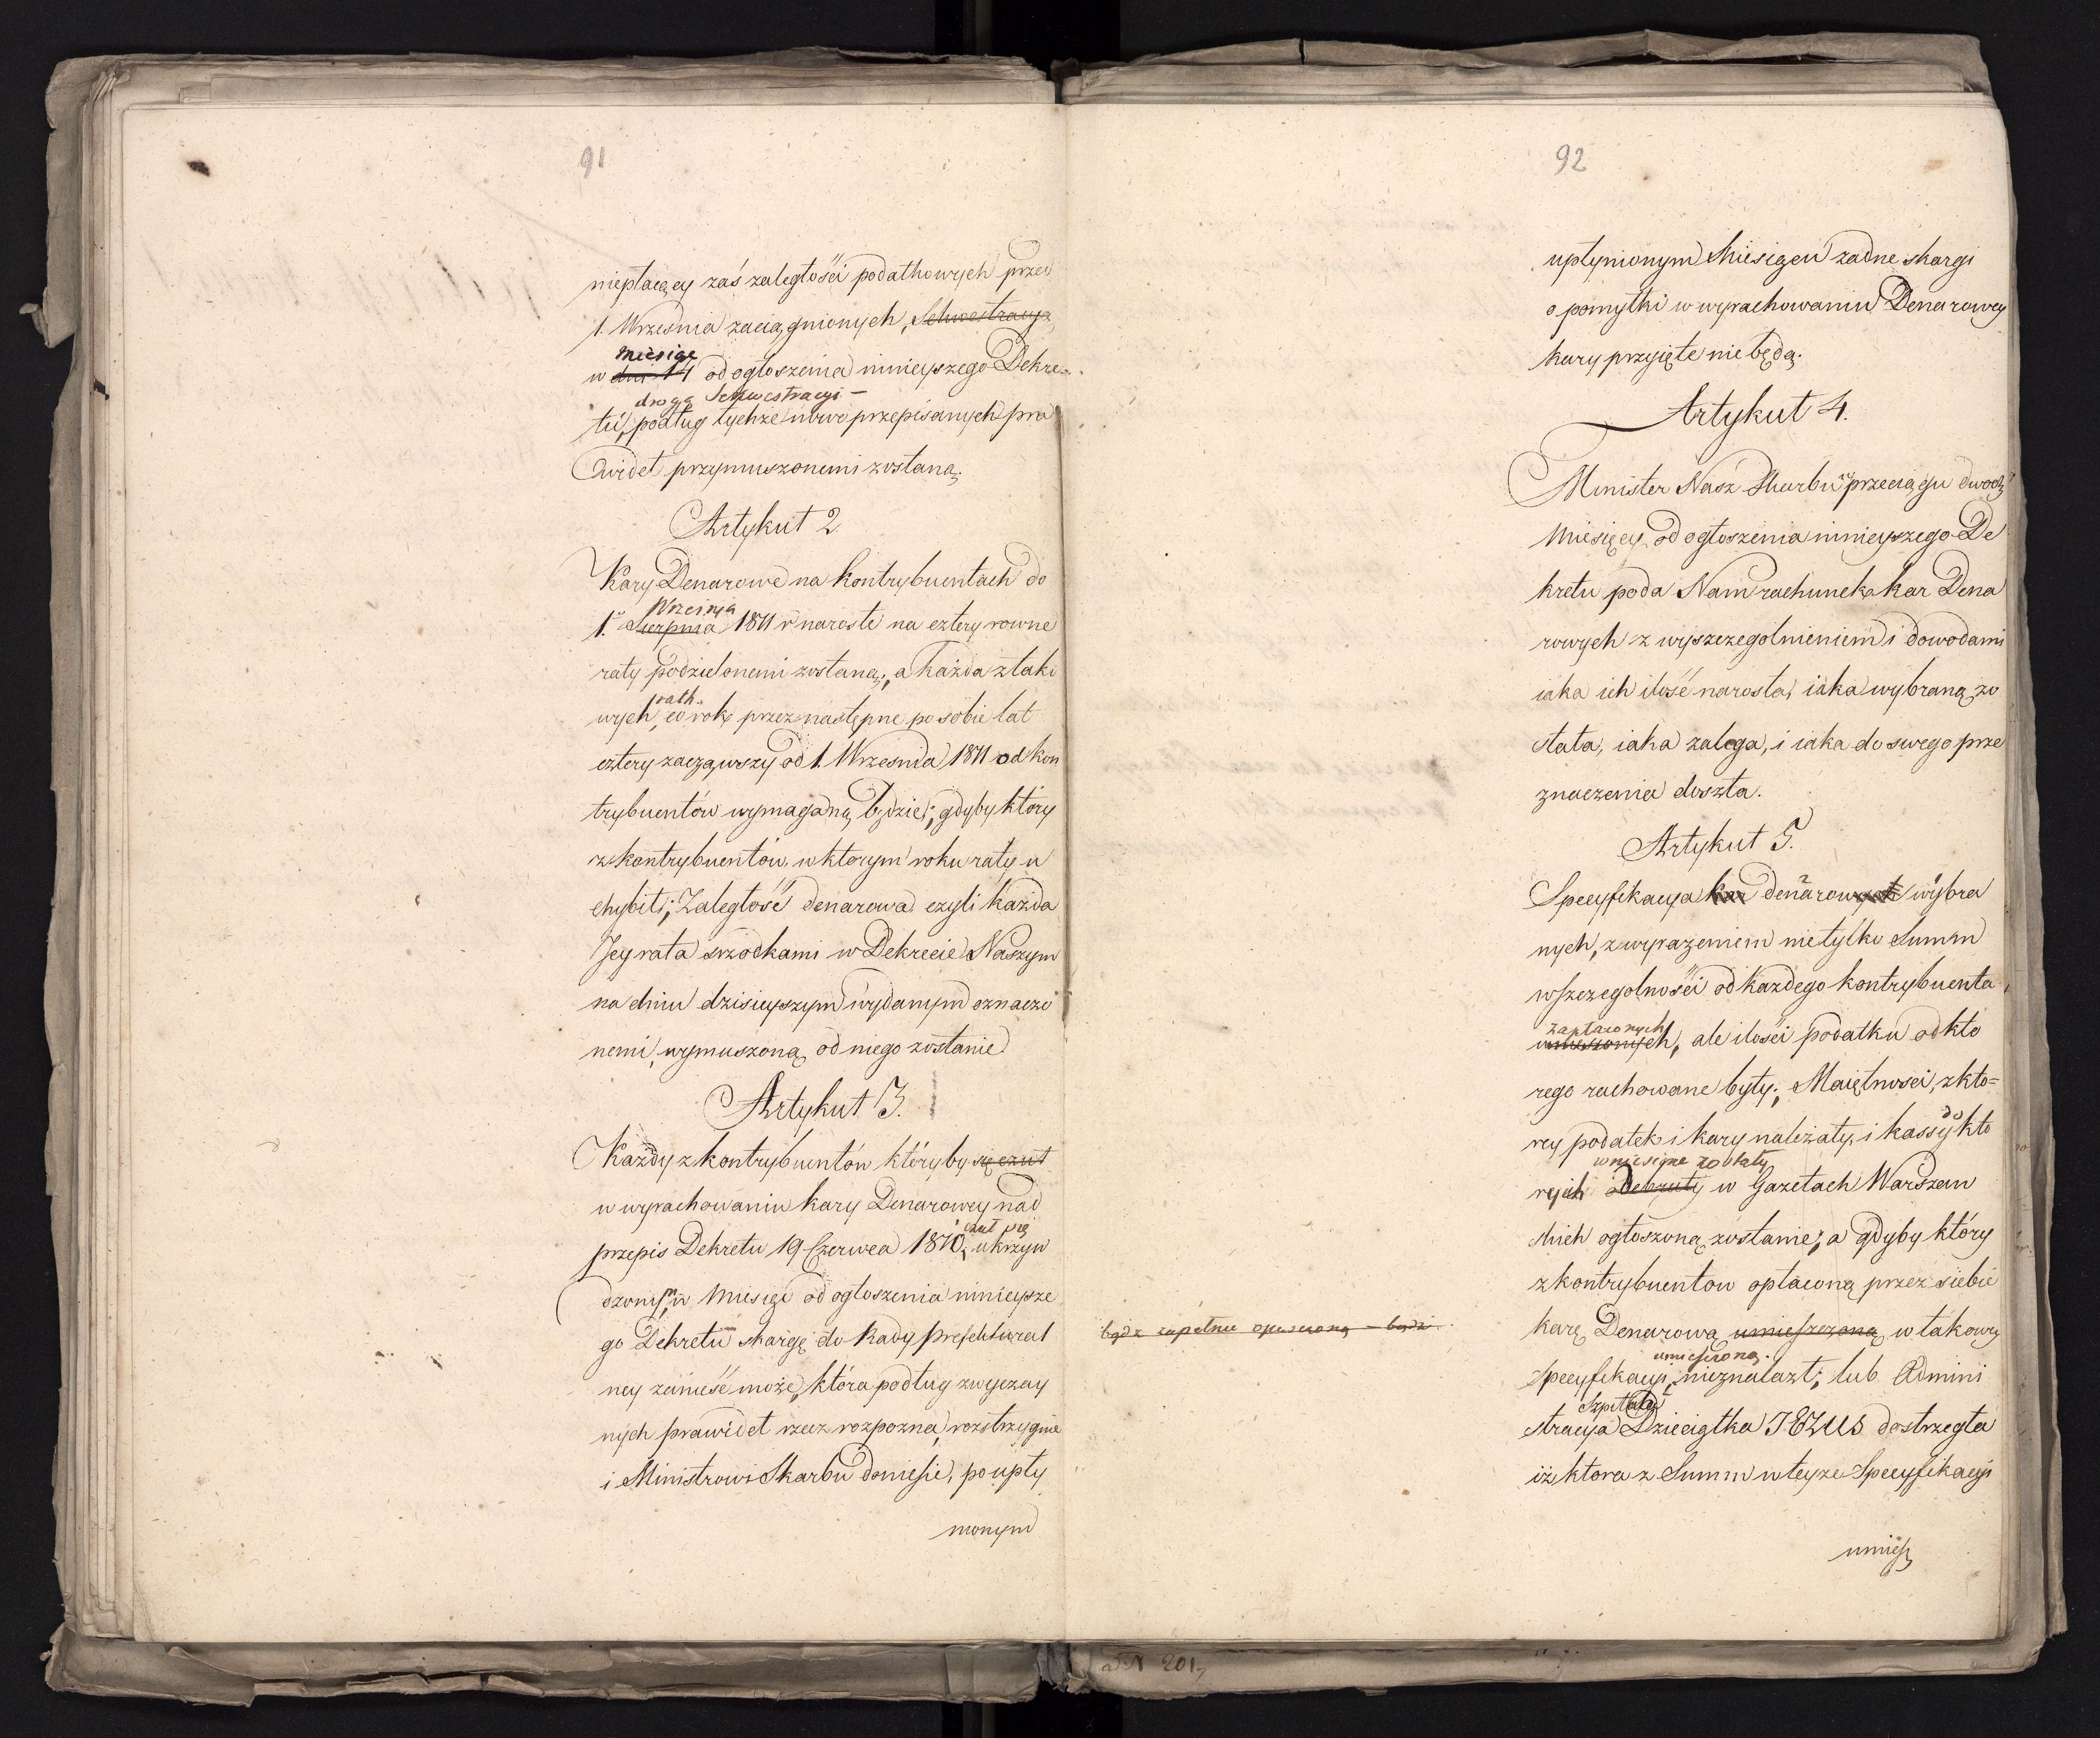 91
niepłacący zaś zaległości podatkowych przed
1. Września zaciągnionych, Sekwestracyą
miesiąc
w dni 14 od ogłoszenia ninieyszego Dekre-
drogą Sekwestracyi –
tu, podług tychże nowo przepisanych pra
wideł przymuszonemi zostaną.
Artykuł 2
Kary Denarowe na kontrybuentach do
Września
1. Sierpnia 1811 r narosłe na cztery rowne
raty podzielonemi zostaną, a każda z tako
rath
wych, co rok, przez następne po sobie lat
cztery zacząwszy od 1. Września 1811 od kon
trybuentów wymaganą będzie; gdyby który
z kontrybuentów, w ktorym roku raty u
chybił; Zaległość denarowa czyli każda
Jey rata srzodkami w Dekrecie Naszym
na dniu dzisieyszym wydanym oznaczo
nemi, wymuszoną od niego zostanie.
Artykuł 3.
Każdy z kontrybuentów któryby się czuł
w wyrachowaniu kary Denarowey nad
czuł się
przepis Dekretu 19 Czerwca 1810, ukrzyw
dzonym, w Miesiąc od ogłoszenia ninieysze
go Dekretu skargę do Rady Prefektural
ney zanieść może, która podług zwyczay
nych prawideł rzecz rozpozna, rozstrzygnie
i Ministrowi Skarbu doniesie, po upły
nionym
92
upłynionym Miesiącu żadne skargi
o pomyłki w wyrachowaniu Denarowey
kary przyięte nie będą.
Artykuł 4.
Minister Nasz Skarbu w przeciągu dwóch
Miesięcy od ogłoszenia ninieyszego De
kretu poda Nam rachunek kar Dena
rowych z wyszczegolnieniem i dowodami
iaka ich ilość narosła, iaka wybraną zo
stała, iaka zalega, i iaka do swego prze
znaczenia doszła.
Artykuł 5.
Specyfikacya kar denarowych wybra
nych, z wyrażeniem nietylko Summ
wszczegolności od każdego kontrybuenta
zapłaconych
wnieszonych, ale ilości podatku od kto
rego rachowane były; Maiętności, z kto=
do
rey podatek i kary należały, i kassy kto
wniesione zostały
rych odebrały w Gazetach Warszaw
skich ogłoszoną zostanie; a gdyby który
z kontrybuentow opłaconą przez siebie
bądz zupełnie opuszczoną – bądź
karę Denarową umieszczoną w takowey
umieszczoną
Specyfikacyi, nieznalazł; lub Admini
Szpitala
stracya Dzieciątka JEZUS dostrzegła
iż ktora z Summ w teyże Specyfikacyi
umiesz
ad N 201,